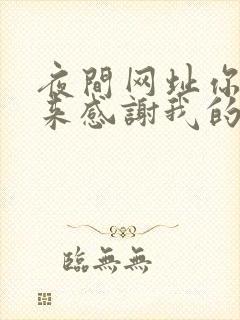 夜間网址你
来感謝我的
臨無無